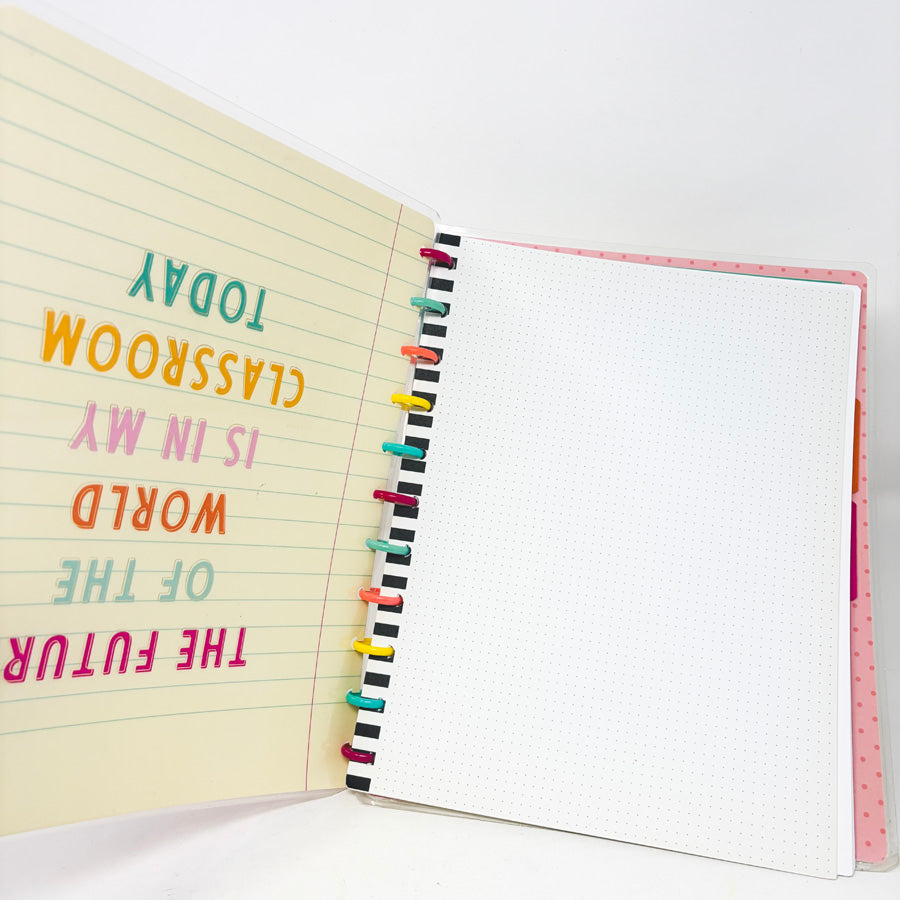 THE FUTUR
OF THE
WORLD
IS IN MY
CLASSROOM
TODAY